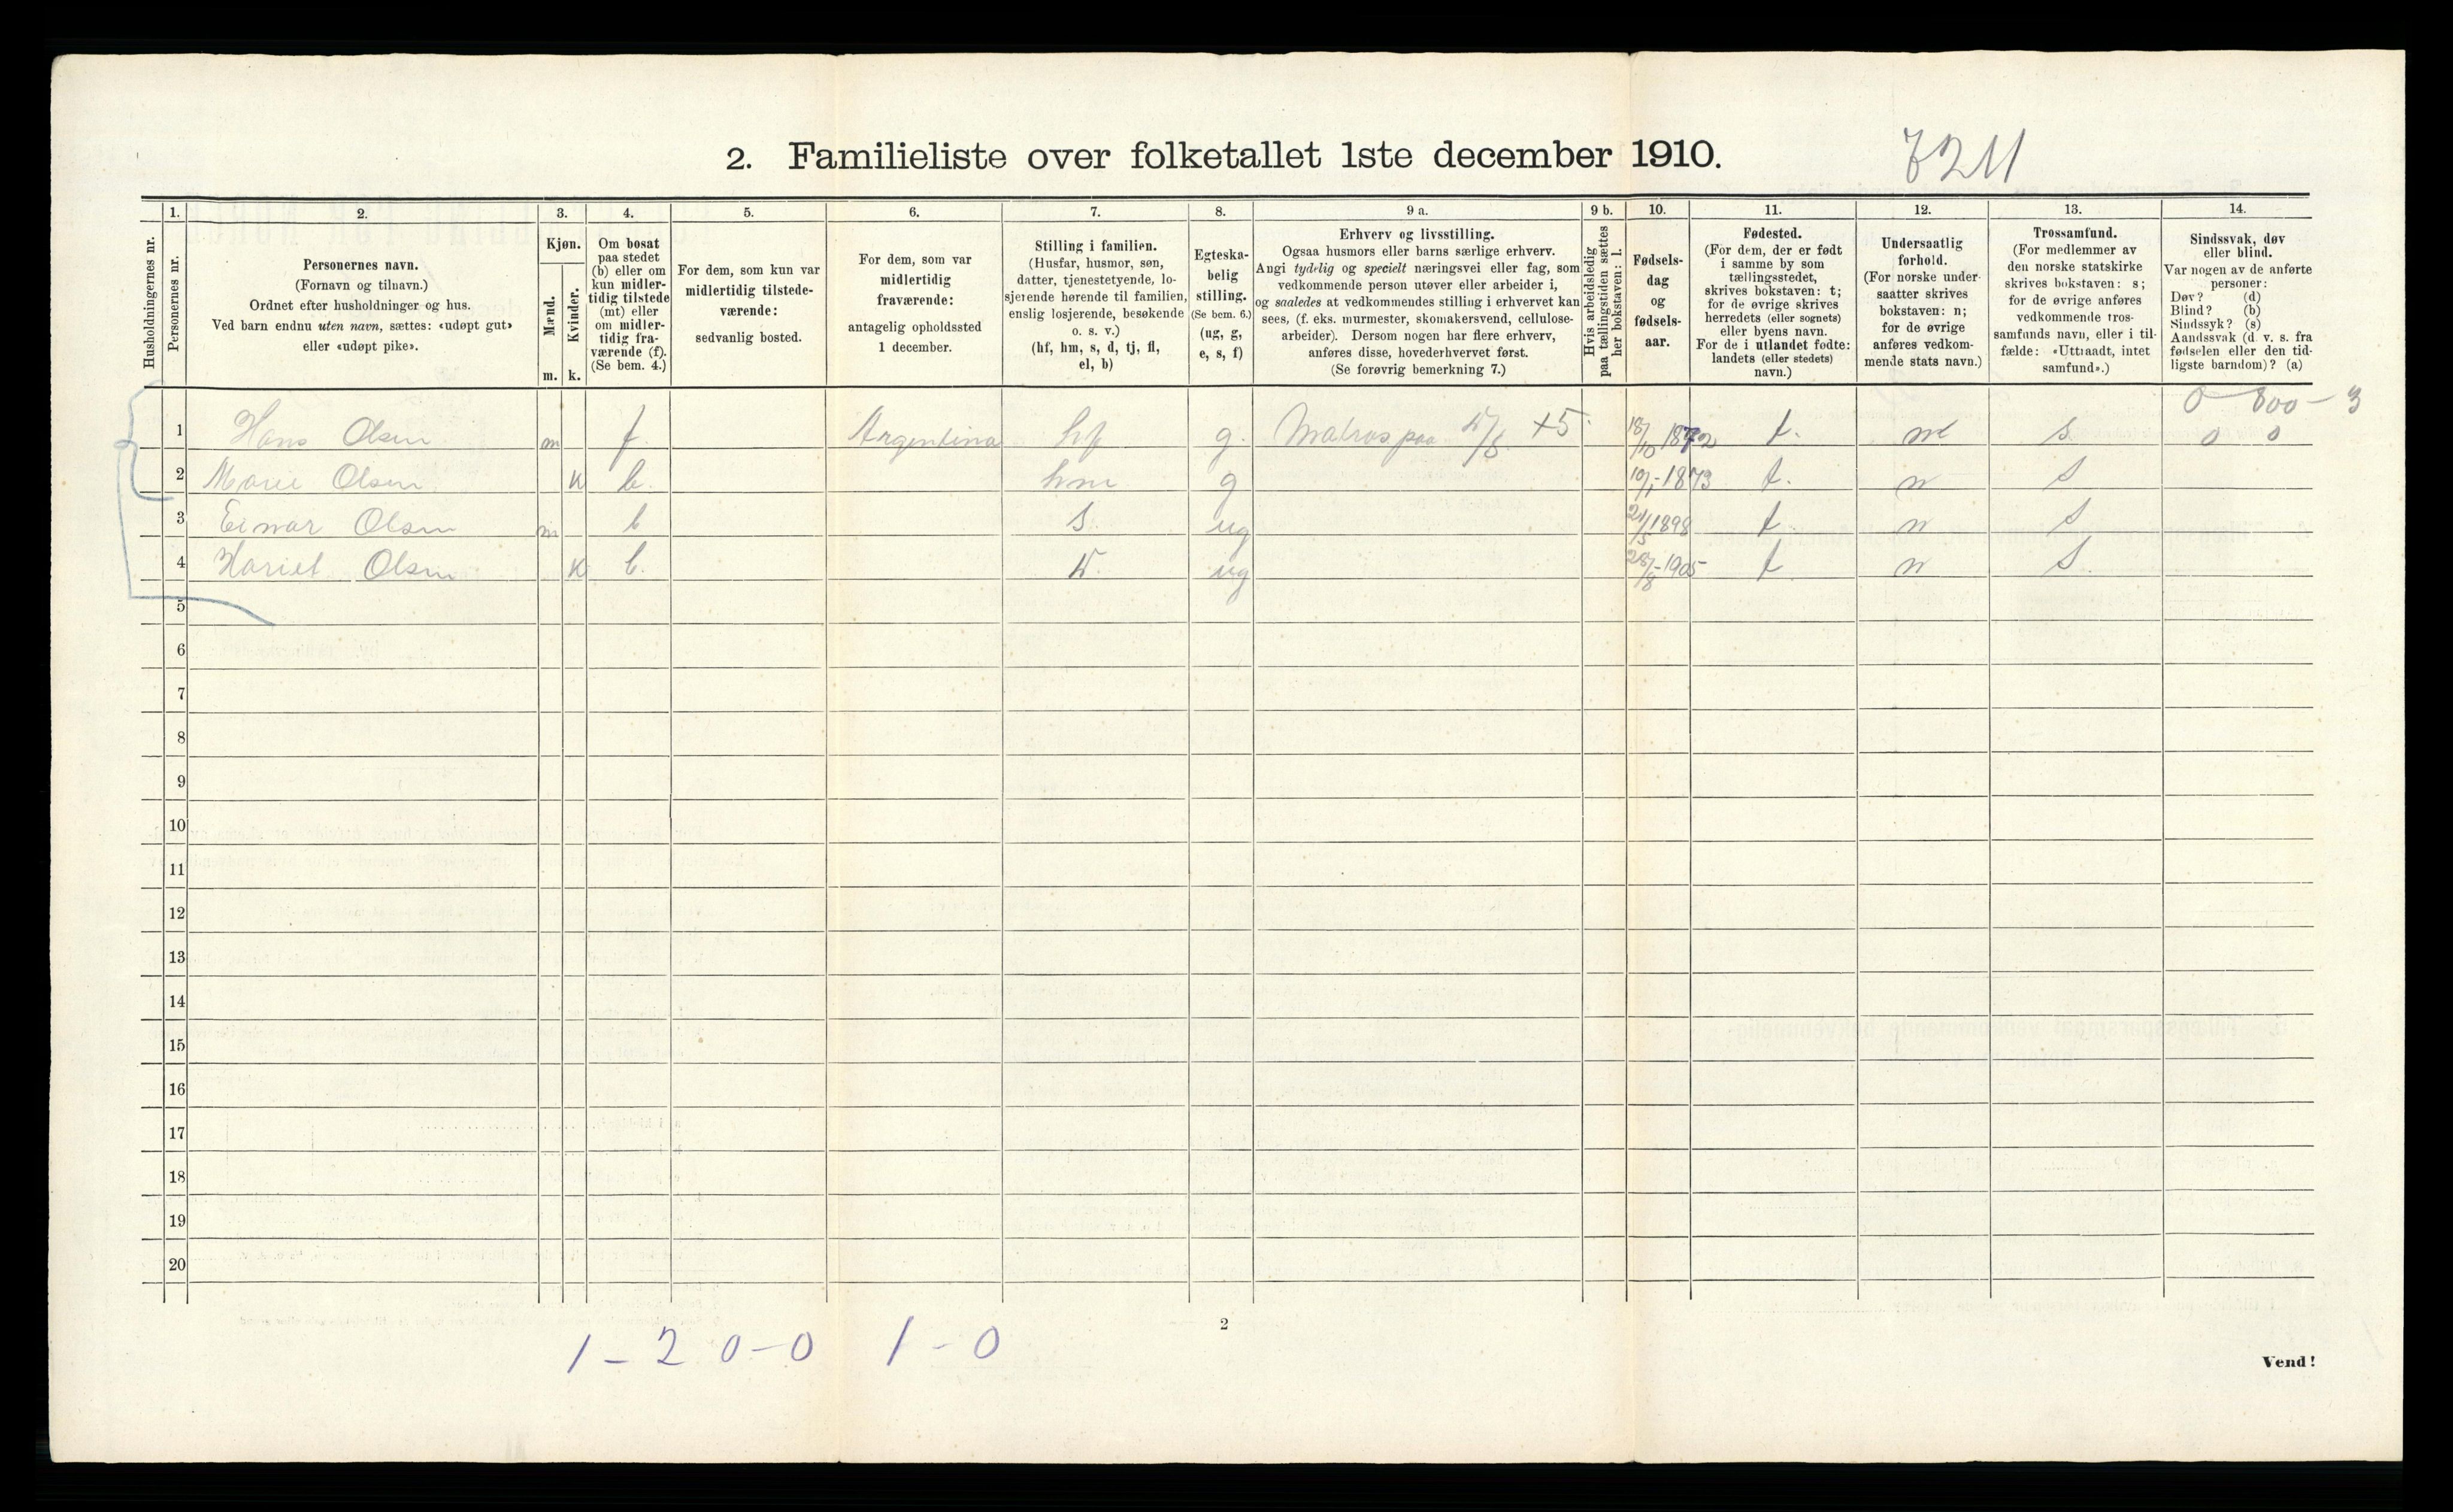 2. Familieliste over folketallet 1ste december 1910.
1. 2. 3. 4. 5. 6. 7. 8. 9 a. 9 b. 10. 11. 12. 13. 14.
Husholdningernes nr.
Personernes nr.
Personernes navn.
(Fornavn og tilnavn.)
Ordnet efter husholdninger og hus.
Ved barn endnu uten navn, sættes: «udøpt gut»
eller «udøpt pike».
Kjøn.
Mænd.
m.
Kvinder.
k.
Om bosat
paa stedet
(b) eller om
kun midler-
tidig tilstede
(mt) eller
om midler-
tidig fra-
værende (f).
(Se bem. 4.)
For dem, som kun var
midlertidig tilstede-
værende:
sedvanlig bosted.
For dem, som var
midlertidig
fraværende:
antagelig opholdssted
1 december.
Stilling i familien.
(Husfar, husmor, søn,
datter, tjenestetyende, lo-
sjerende hørende til familien,
enslig losjerende, besøkende
o. s. v.)
(hf, hm, s, d, tj, fl,
el, b)
Egteska-
belig
stilling.
(Se bem. 6.)
(ug, g,
e, s, f)
Erhverv og livsstilling.
Ogsaa husmors eller barns særlige erhverv.
Angi tydelig og specielt næringsvei eller fag, som
vedkommende person utøver eller arbeider i,
og saaledes at vedkommendes stilling i erhvervet kan
sees, (f. eks. murmester, skomakersvend, cellulose-
arbeider). Dersom nogen har flere erhverv,
anføres disse, hovederhvervet først.
(Se forøvrig bemerkning 7.)
Hvis arbeidsledig
paa tællingstiden sættes
her bokstaven: l.
Fødsels-
dag
og
fødsels-
aar.
Fødested.
(For dem, der er født
i samme by som
tællingsstedet,
skrives bokstaven: t;
for de øvrige skrives
herredets (eller sognets)
eller byens navn.
For de i utlandet fødte:
landets (eller stedets)
navn.)
Undersaatlig
forhold.
(For norske under-
saatter skrives
bokstaven: n;
for de øvrige
anføres vedkom-
mende stats navn.)
Trossamfund.
(For medlemmer av
den norske statskirke
skrives bokstaven: s;
for de øvrige anføres
vedkommende tros-
samfunds navn, eller i til-
fælde: «Uttraadt, intet
samfund».)
Sindssvak, døv
eller blind.
Var nogen av de anførte
personer:
Døv? (d)
Blind? (b)
Sindssyk? (s)
Aandssvak (d. v. s. fra
fødselen eller den tid-
ligste barndom)? (a)
0 800 – 3
1 Hans Olsen m f. Argentina hf g. Matros paa D/S +5 18/10 1872 t. n s. 0 0
2 Marie Olsen. k b. hm g 10/1-1873 t. n s
3 Einar Olsen m b s. ug 24/5 1898 t n s
4 Hariet Olsen k b. d. ug 28/8-1905 t n s.
5
6
7
8
9
10
11
12
13
14
15
16
17
18
19
20
2
1 – 2 0 – 0 1 – 0
Vend!